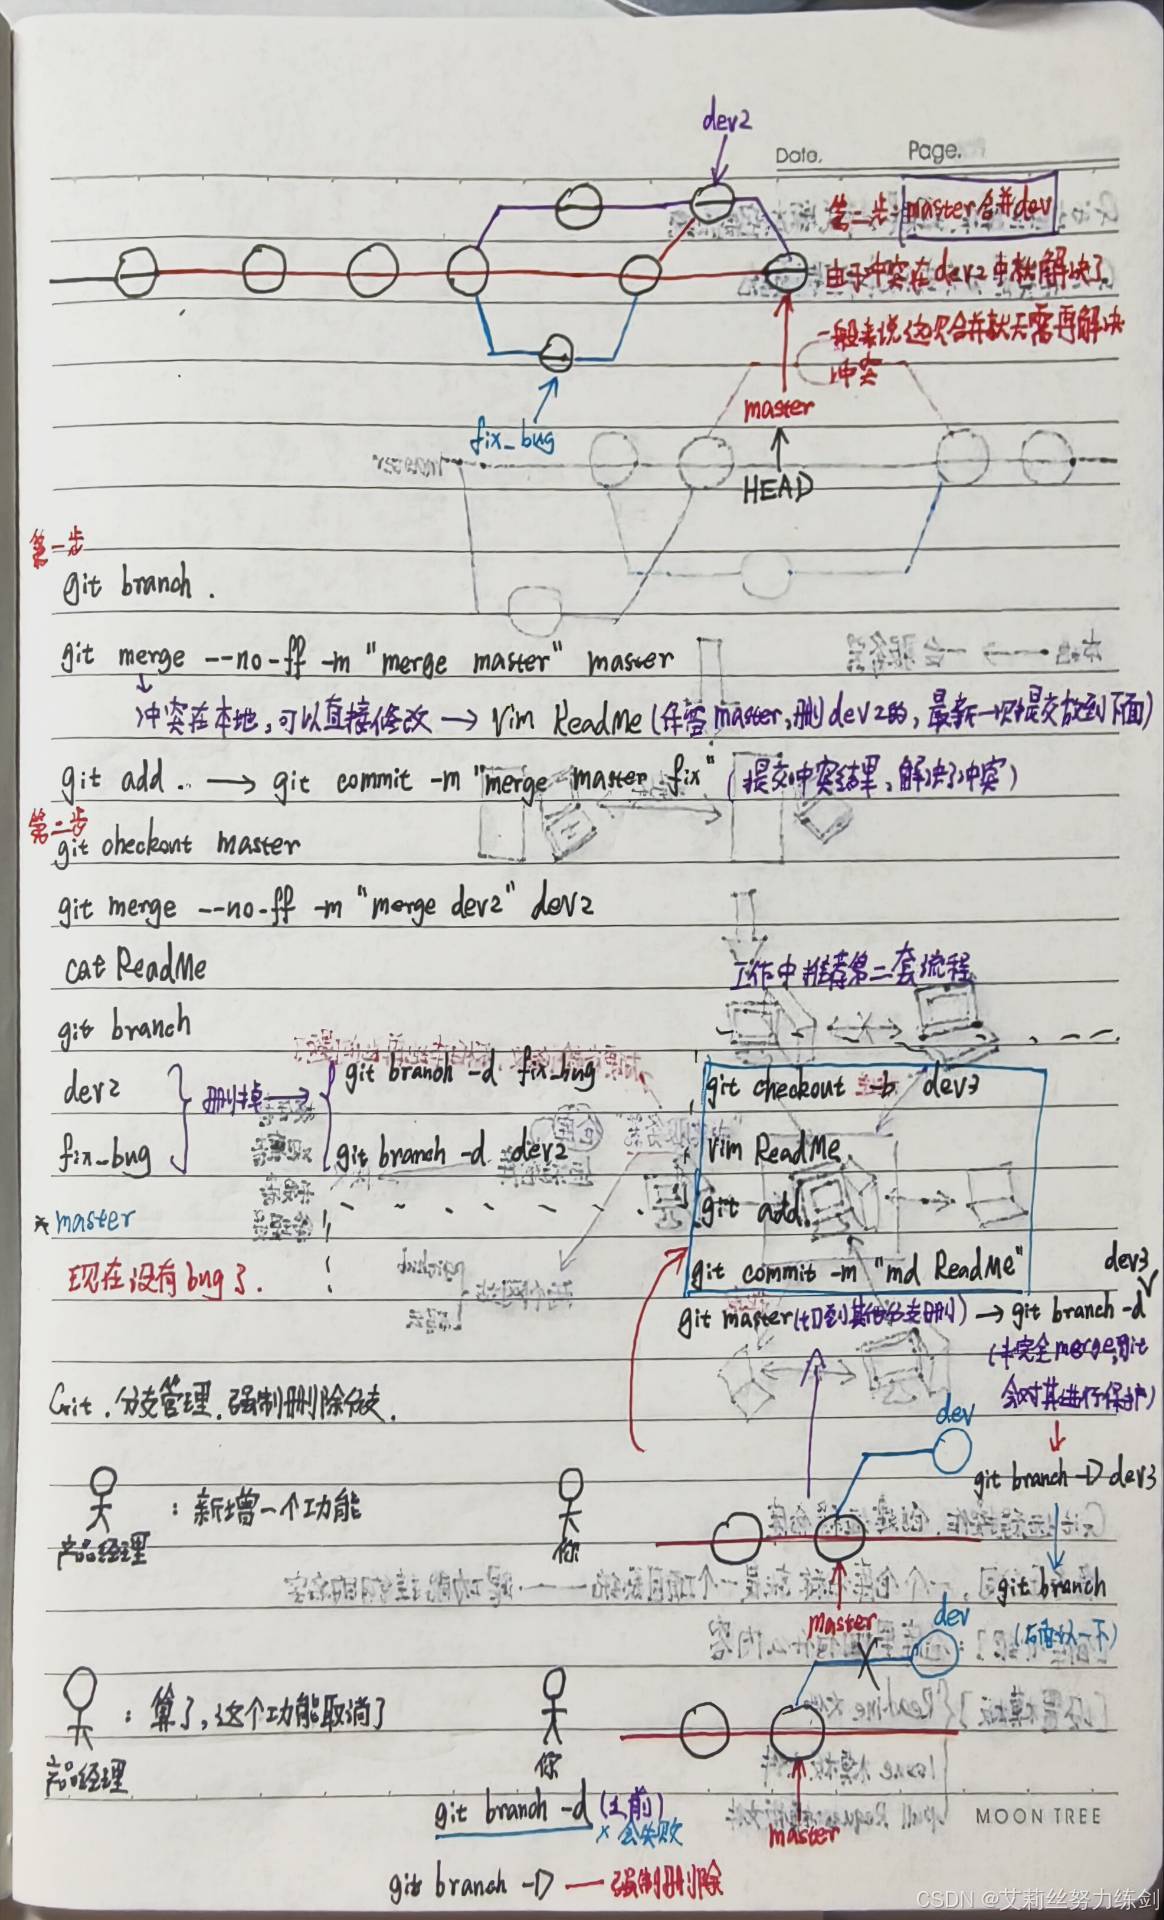 dev2
Date.
Page.
第二步：master合并dev
由于冲突在dev2中就解决了
一般来说这次合并就无需再解决
冲突
fix_bug
master
HEAD
第一步
git branch .
git merge --no-ff -m "merge master" master
冲突在本地,可以直接修改 → Vim ReadMe (保留master,删dev2的,最新一次提交放到下面)
git add . → git commit -m "merge master fix" (提交冲突结果,解决了冲突)
第二步
git checkout master
git merge --no-ff -m "merge dev2" dev2
cat ReadMe
工作中推荐第二套流程
git branch
dev2
fix_bug
删掉 →
git branch -d fix_bug
git branch -d dev2
* master
现在没有bug了.
git checkout -b dev3
Vim ReadMe
git add.
git commit -m "md ReadMe"
git master(切到其他分支删) → git branch -d dev3
(未完全merge,git
会对其进行保护)
git branch -D dev3
git branch
Git.分支管理.强制删除分支.
产品经理
：新增一个功能
你
dev
master
产品经理
：算了,这个功能取消了
你
dev
master
git branch -d
× 会失败
git branch -D — 强制删除
MOON TREE
CSDN @艾莉丝努力练剑